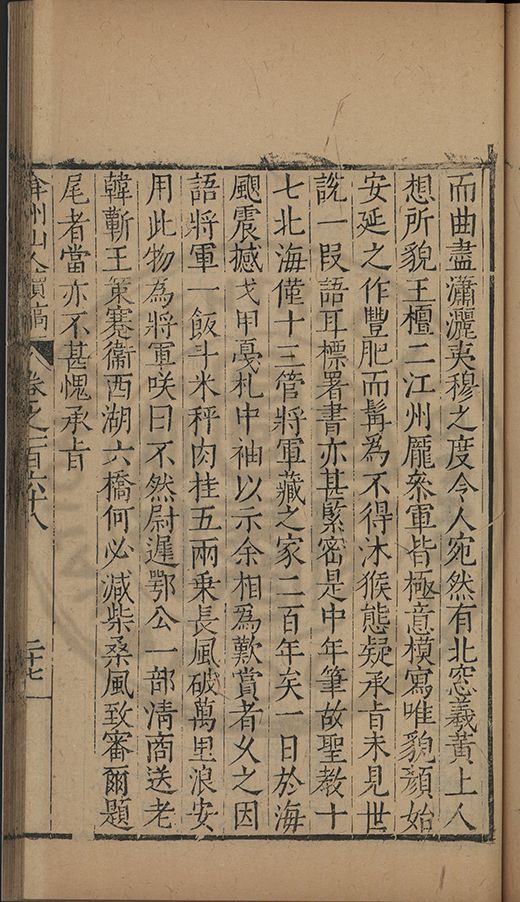 而曲盡瀟灑夷穆之度令人宛然有北窓羲黄上人
想所貌王檀二江州龐叅軍皆極意模寫唯貌顏始
安延之作豐肥而髯為不得沐猴態疑承旨未見世
說一段語耳標署書亦甚緊密是中年筆故聖教十
七北海僅十三管將軍藏之家二百年矣一日於海
颶震撼戈甲戛札中袖以示余相為歎賞者乆之因
語將軍一飯斗米秤肉挂五兩乗長風破萬里浪安
用此物為將軍咲曰不然尉遲鄂公一部清商送老
韓蘄王策蹇衞西湖六橋何必减柴桑風致審爾題
尾者當亦不甚愧承旨
弇州山人續稿 卷之一百六十八 二十七